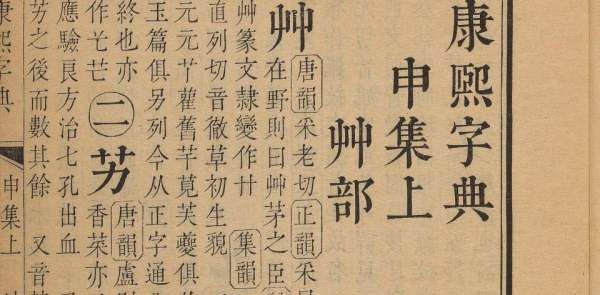 康熙字典
申集上
艸部
艸
唐韻采老切正韻采
在野則曰艸茅之臣
艸篆文隷變作卄 集韻
直列切音徹草初生貌
雚舊芊莧芙夔俱
玉篇俱另列今从正字通
終也亦
作芒
二
艻
唐韻盧
香菜亦
應驗良方治七孔出血
艻之後而數其餘 又音
康熙字典 申集上